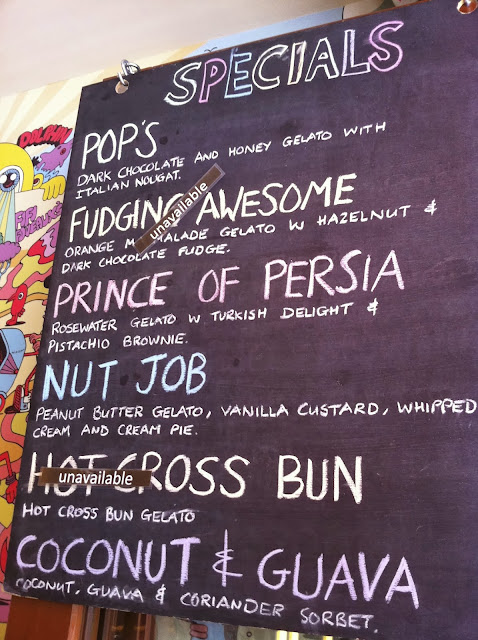 SPECIALS
POP'S
DARK CHOCOLATE AND HONEY GELATO WITH
ITALIAN NOUGAT.
FUDGING AWESOME
unavailable
ORANGE M MALADE GELATO W HAZELNUT &
DARK CHOCOLATE FUDGE.
PRINCE OF PERSIA
ROSEWATER GELATO W TURKISH DELIGHT &
PISTACHIO BROWNIE.
NUT JOB
PEANUT BUTTER GELATO, VANILLA CUSTARD, WHIPPED
CREAM AND CREAM PIE.
HOT CROSS BUN
unavailable
HOT CROSS BUN GELATO
COCONUT & GUAVA
COCONUT, GUAVA & CORIANDER SORBET.